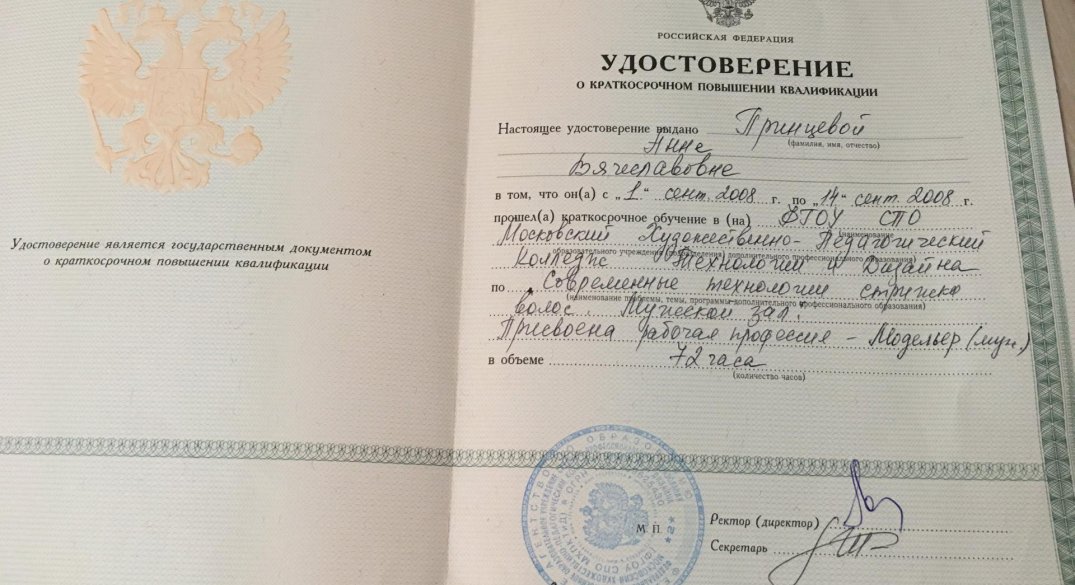 Удостоверение является государственным документом
о краткосрочном повышении квалификации
РОССИЙСКАЯ ФЕДЕРАЦИЯ
УДОСТОВЕРЕНИЕ
О КРАТКОСРОЧНОМ ПОВЫШЕНИИ КВАЛИФИКАЦИИ
Настоящее удостоверение выдано Принцевой
(фамилия, имя, отчество)
Анне
Вячеславовне
в том, что он(а) с „1" сент. 2008 г. по „14" сент. 2008 г.
прошел(а) краткосрочное обучение в (на) ФГОУ СПО
(наименование
Московский Художественно-Педагогический
образовательного учреждения (подразделения) дополнительного профессионального образования)
Колледж Технологии и Дизайна
по „Современные технологии стрижки
(наименование проблемы, темы, программы дополнительного профессионального образования)
волос. Мужской зал."
Присвоена рабочая профессия – Модельер (муж.)
в объеме 72 часа
(количество часов)
М.П.
Ректор (директор)
Секретарь